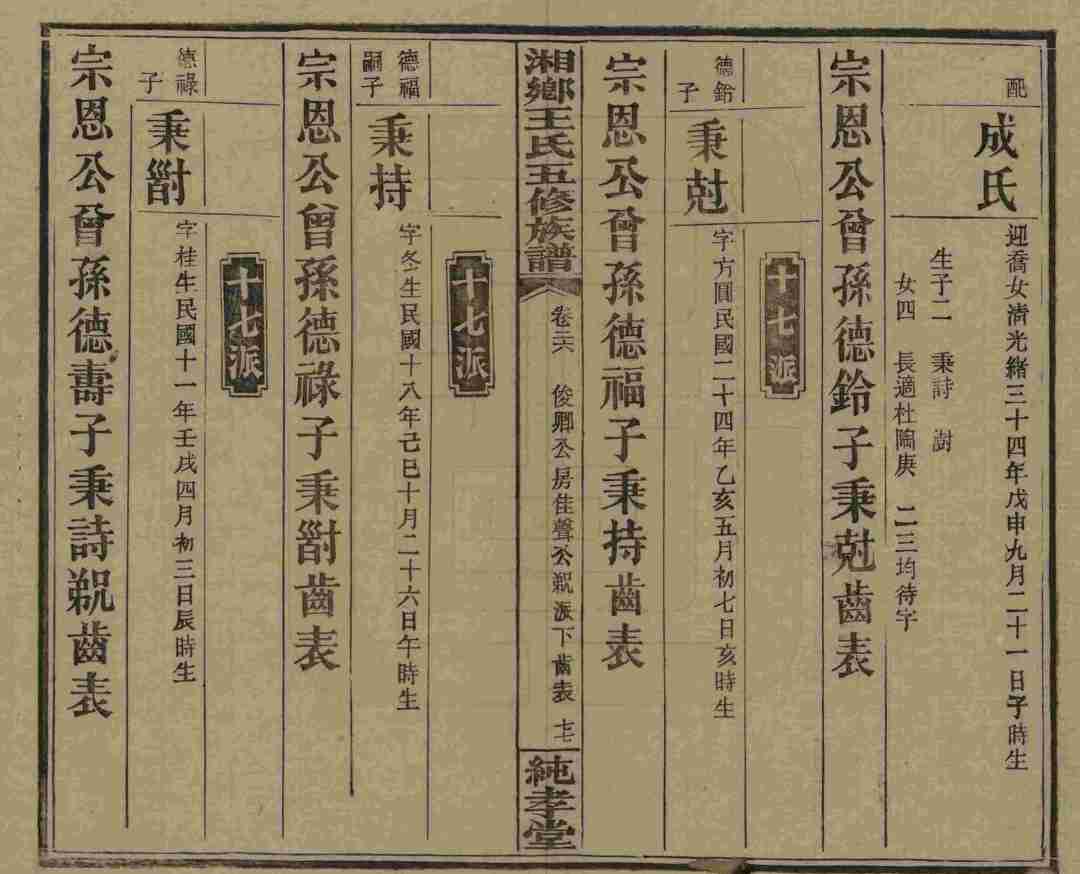 配
成氏
迎喬女清光緒三十四年戊申九月二十一日子時生
生子二 秉詩 澍
女四 長適杜陶庚 二三均待字
宗恩公曾孫德鈴子秉尅齒表
十七派
德鈴子
秉尅
字方圓民國二十四年乙亥五月初七日亥時生
宗恩公曾孫德福子秉持齒表
湘鄉王氏五修族譜
卷三六 俊卿公房佳聲公派下齒表 七七
純孝堂
十七派
德福嗣子
秉持
字冬生民國十八年己巳十月二十六日午時生
宗恩公曾孫德祿子秉齒表
十七派
德祿子
秉
字桂生民國十一年壬戌四月初三日辰時生
宗恩公曾孫德壽子秉詩齒表